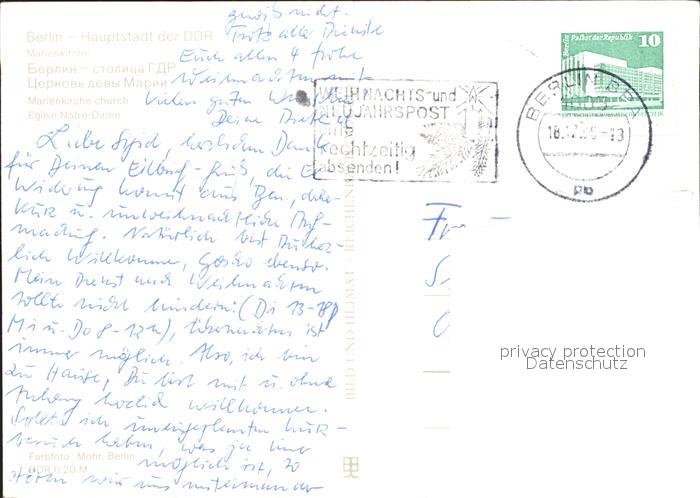 Berlin – Hauptstadt der DDR
Marienkirche
Берлин – столица ГДР
Церковь девы Марии
Marienkirche church
Eglise Notre-Dame
WEIHNACHTS- und
NEUJAHRSPOST
bitte
rechtzeitig
absenden!
Berlin Palast der Republik
10
DDR
BERLIN
18.12.
pb
Liebe Sigrid, herzlichen Dank
für Deinen Eilbrief-Gruß, die
kurz u. unweihnachtliche Auf-
machung. Natürlich bist Du herz-
lich Willkommen, ebenso.
Mein Dienst nach Weihnachten
sollte nicht hindern! (Di 13-18
Mi u. Do 8-12h), übernachten ist
immer möglich. Also, ich bin
zu Hause, Du bist mit u. ohne
Anhang herzlich willkommen.
Sollte ich
haben, was ja immer
möglich ist, so
hören wir uns miteinander
gewiß nicht.
Trotz aller Dienste
Euch allen 4 frohe
Weihnachten mit
vielen guten
Deine
BILD UND HEIMAT REICHENBACH
Farbfoto: Mohr, Berlin
DDR 0,20 M
privacy protection
Datenschutz